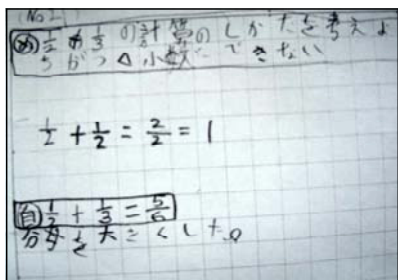 (No 2)
め 1/2 + 1/3 の計算のしかたを考えよ
う が△小数で できない
1/2 + 1/2 = 2/2 = 1
自 1/2 + 1/3 = 5/6
分母を大きくした。